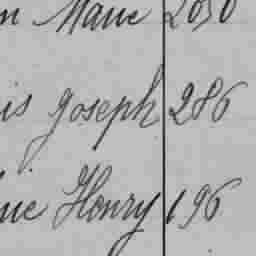 Marie 2050
is Joseph 286
ie Henry 196